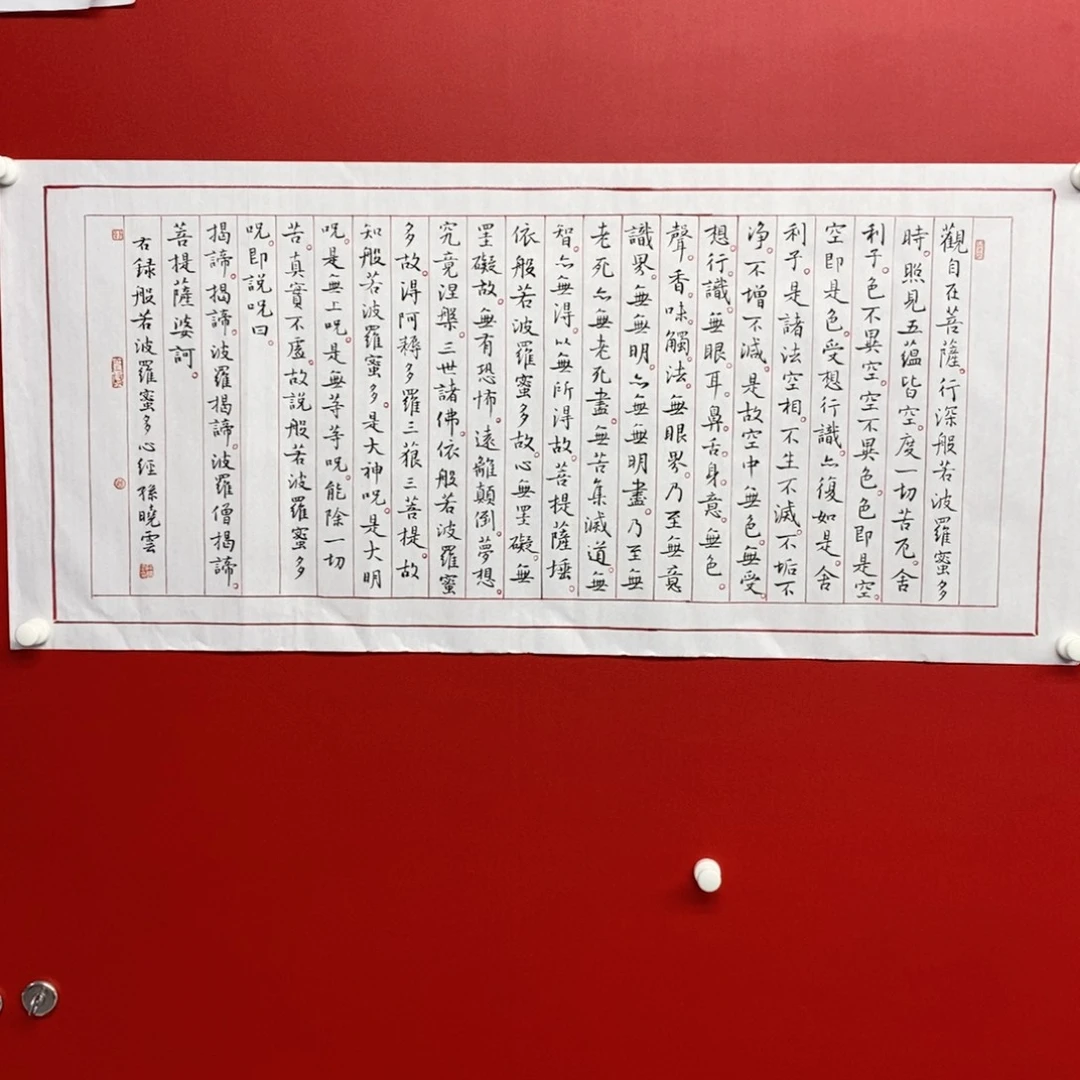 觀自在菩薩。行深般若波羅蜜多
時。照見五蘊皆空。度一切苦厄。舍
利子。色不異空。空不異色。色即是空。
空即是色。受想行識。亦復如是。舍
利子。是諸法空相。不生不滅。不垢不
淨。不增不減。是故空中無色。無受。
想。行。識。無眼。耳。鼻。舌。身。意。無色。
聲。香。味。觸。法。無眼界。乃至無意
識界。無無明。亦無無明盡。乃至無
老死。亦無老死盡。無苦集滅道。無
智。亦無得。以無所得故。菩提薩埵。
依般若波羅蜜多故。心無罣礙。無
罣礙故。無有恐怖。遠離顛倒。夢想。
究竟涅槃。三世諸佛。依般若波羅蜜
多故。得阿耨多羅三藐三菩提。故
知般若波羅蜜多。是大神呪。是大明
呪。是無上呪。是無等等呪。能除一切
苦。真實不虛。故說般若波羅蜜多
呪。即說呪曰。
揭諦。揭諦。波羅揭諦。波羅僧揭諦。
菩提薩婆訶。
右録般若波羅蜜多心經 孫曉雲